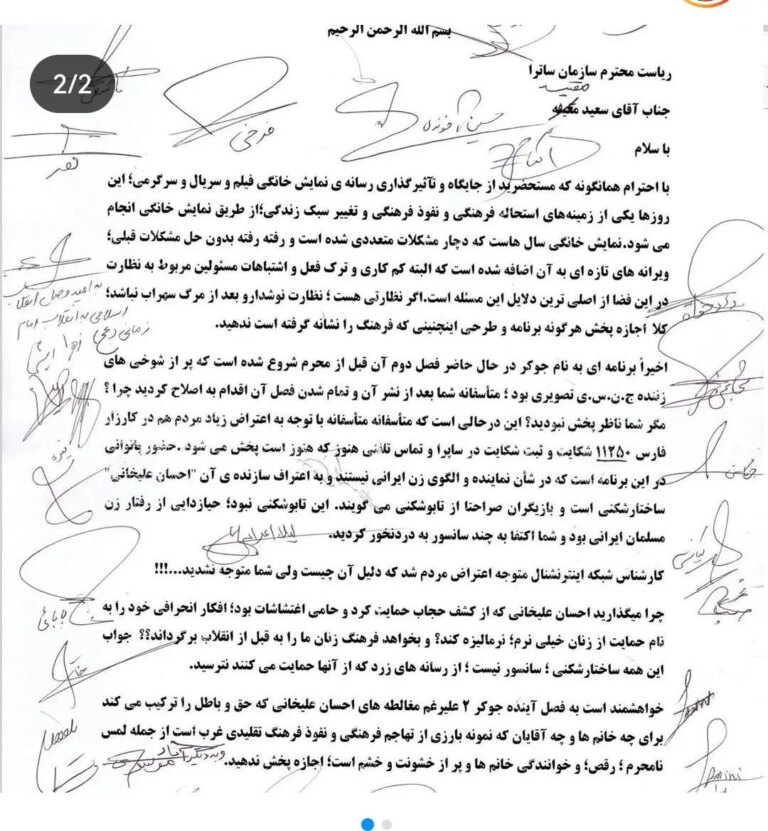 2/2
بسم الله الرحمن الرحیم
ریاست محترم سازمان ساترا
جناب آقای سعید
مقیسه
با سلام
با احترام همانگونه که مستحضرید از جایگاه و تأثیرگذاری رسانه ی نمایش خانگی فیلم و سریال و سرگرمی؛ این
روزها یکی از زمینه‌های استحاله فرهنگی و نفوذ فرهنگی و تغییر سبک زندگی؛از طریق نمایش خانگی انجام
می شود.نمایش خانگی سال هاست که دچار مشکلات متعددی شده است و رفته رفته بدون حل مشکلات قبلی؛
ویرانه های تازه ای به آن اضافه شده است که البته کم کاری و ترک فعل و اشتباهات مسئولین مربوط به نظارت
در این فضا از اصلی ترین دلایل این مسئله است.اگر نظارتی هست ؛ نظارت نوشدارو بعد از مرگ سهراب نباشد؛
کلا اجازه پخش هرگونه برنامه و طرحی اینچنینی که فرهنگ را نشانه گرفته است ندهید.
اخیراً برنامه ای به نام جوکر در حال حاضر فصل دوم آن قبل از محرم شروع شده است که پر از شوخی های
زننده ج.ن.س.ی تصویری بود ؛ متأسفانه شما بعد از نشر آن و تمام شدن فصل آن اقدام به اصلاح کردید چرا ؟
مگر شما ناظر پخش نبودید؟ این درحالی است که متأسفانه متأسفانه با توجه به اعتراض زیاد مردم هم در کارزار
فارس ۱۱۲۵۰ شکایت و ثبت شکایت در ساپرا و تماس تلفنی هنوز که هنوز است پخش می شود .حضور بانوانی
در این برنامه است که در شأن نماینده و الگوی زن ایرانی نیستند و به اعتراف سازنده ی آن "احسان علیخانی"
ساختارشکنی است و بازیگران صراحتا از تابوشکنی می گویند. این تابوشکنی نبود؛ حیازدایی از رفتار زن
مسلمان ایرانی بود و شما اکتفا به چند سانسور به دردنخور کردید.
کارشناس شبکه اینترنشنال متوجه اعتراض مردم شد که دلیل آن چیست ولی شما متوجه نشدید...!!!
چرا میگذارید احسان علیخانی که از کشف حجاب حمایت کرد و حامی اغتشاشات بود؛ افکار انحرافی خود را به
نام حمایت از زنان خیلی نرم؛ نرمالیزه کند؟ و بخواهد فرهنگ زنان ما را به قبل از انقلاب برگرداند؟؟ جواب
این همه ساختارشکنی ؛ سانسور نیست ؛ از رسانه های زرد که از آنها حمایت می کنند نترسید.
خواهشمند است به فصل آینده جوکر ۲ علیرغم مغالطه های احسان علیخانی که حق و باطل را ترکیب می کند
برای چه خانم ها و چه آقایان که نمونه بارزی از تهاجم فرهنگی و نفوذ فرهنگ تقلیدی غرب است از جمله لمس
نامحرم ؛ رقص؛ و خوانندگی خانم ها و پر از خشونت و خشم است؛ اجازه پخش ندهید.
فرخی
بابائی